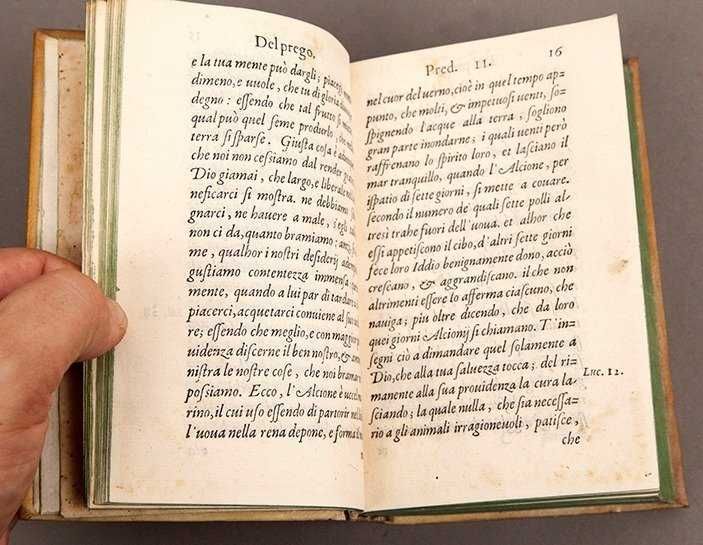 Del prego.
e la tua mente può dargli; piacesi
dimeno, e uuole, che tu di gloria
degno: essendo che tal frutto si
qual può quel seme produrlo, che
terra si sparse. Giusta cosa è
che noi non cessiamo dal render
Dio giamai, che largo, e liberale
neficarci si mostra. ne debbiamo
gnarci, ne hauere a male, s'egli
non ci da, quanto bramiamo:
me, qualhor i nostri desiderij
gustiamo contentezza immensa
mente, quando a lui par di
piacerci, acquetarci conuiene al
re; essendo che meglio, e con maggior
uidenza discerne il ben nostro, &
nistra le nostre cose, che noi
possiamo. Ecco, l'Alcione è
rino, il cui uso essendo di partorir
l'uoua nella rena depone, e forma
Pred. II. 16
nel cuor del uerno, cioè in quel tempo ap=
punto, che molti, & impetuosi uenti, so=
spignendo l'acque alla terra, sogliono
gran parte inondarne; i quali uenti però
raffrenano lo spirito loro, et lasciano il
mar tranquillo, quando l'Alcione, per
ispatio di sette giorni, si mette a couare.
secondo il numero de quali sette polli al=
tresì trahe fuori dell'uoua. et alhor che
essi appetiscono il cibo, d'altri sette giorni
fece loro Iddio benignamente dono, acciò
crescano, & aggrandiscano. il che non
altrimenti essere lo afferma ciascuno, che
nauiga; piu oltre dicendo, che da loro
quei giorni Alcionij si chiamano. T'in=
segni ciò a dimandare quel solamente a
Dio, che alla tua saluezza tocca; del ri=
manente alla sua prouidenza la cura la=
sciando; la quale nulla, che sia necessa=
rio a gli animali irragioneuoli, patisce,
che
Luc. 12.